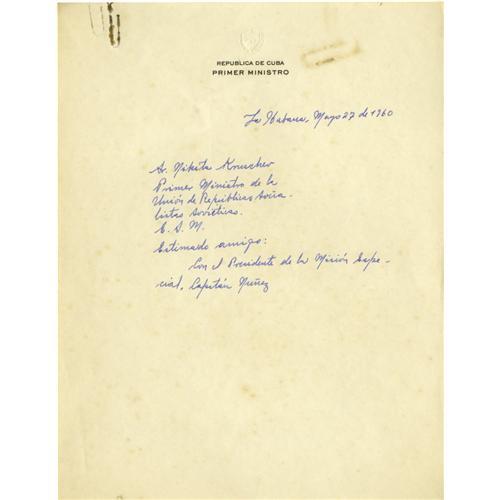 REPUBLICA DE CUBA
PRIMER MINISTRO
La Habana, Mayo 27 de 1960
Sr. Nikita Kruschev
Primer Ministro de la
Unión de Repúblicas Socia-
listas Soviéticas.
E. S. M.
Estimado amigo:
Con el Presidente de la Misión Espe-
cial, Capitán Núñez